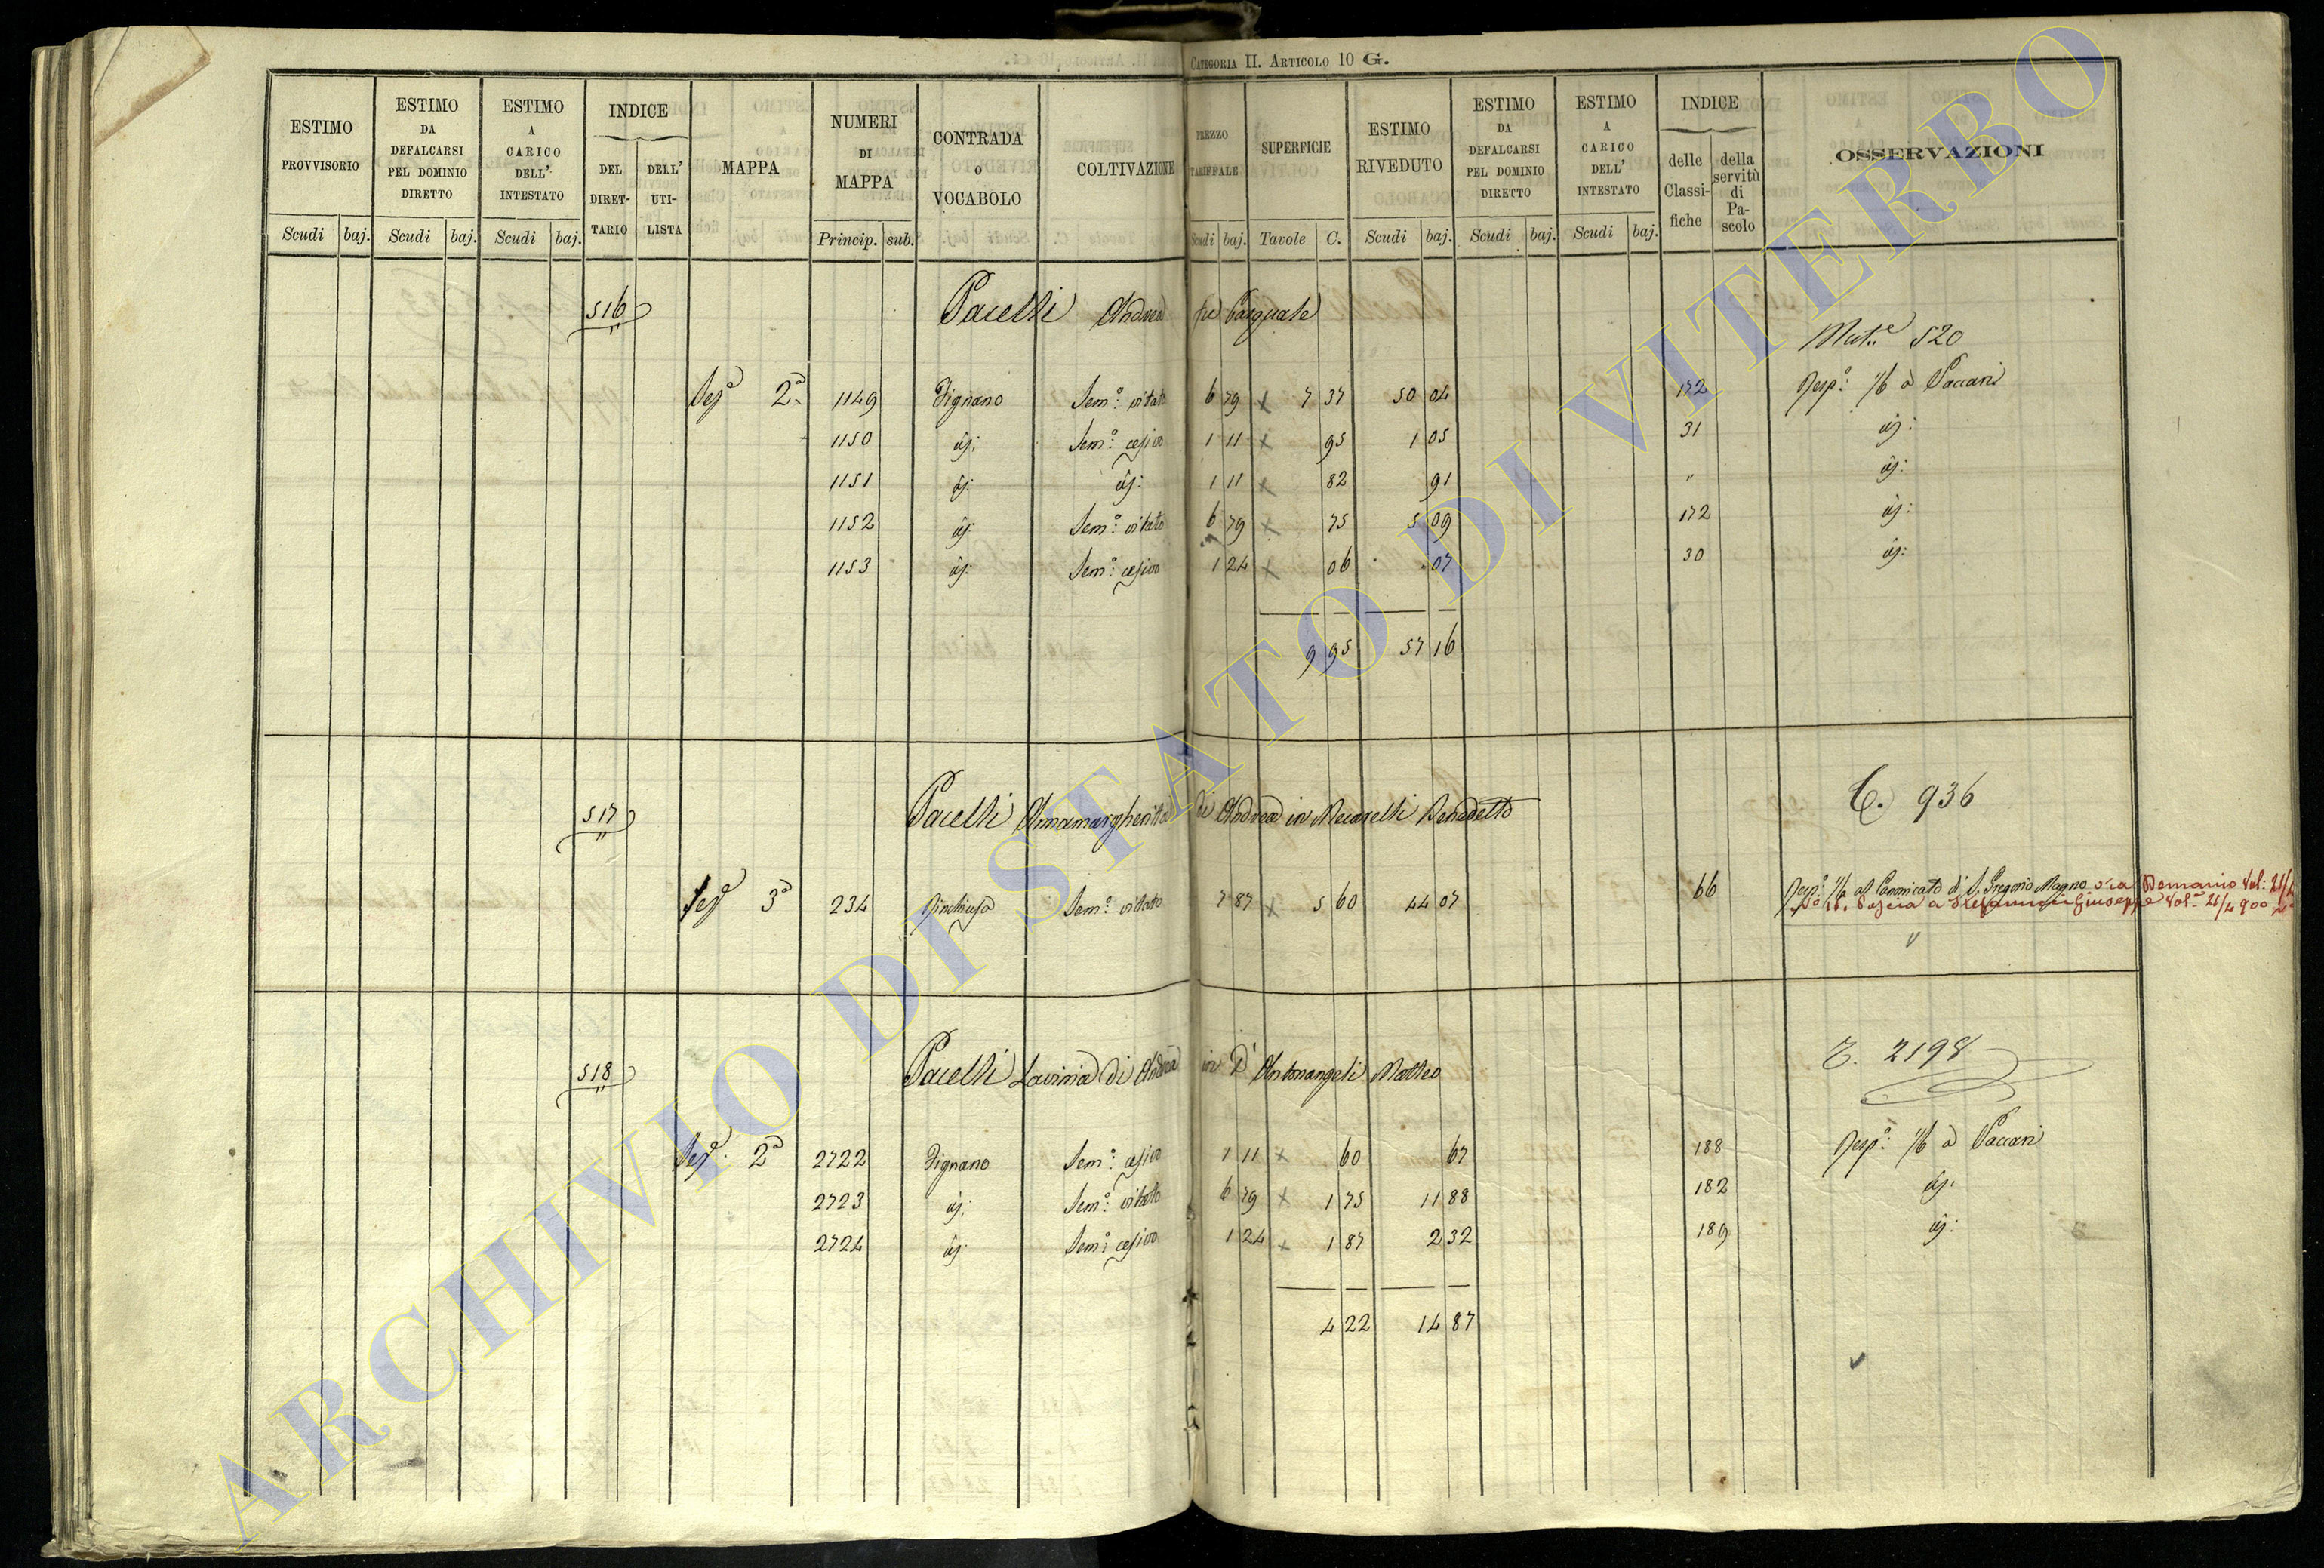 CATEGORIA II. ARTICOLO 10 G.
ESTIMO PROVVISORIO Scudi baj.
ESTIMO DA DEFALCARSI PEL DOMINIO DIRETTO Scudi baj.
ESTIMO A CARICO DELL' INTESTATO Scudi baj.
INDICE DEL DIRETTARIO DELL' UTILISTA
MAPPA
NUMERI DI MAPPA Princip. sub.
CONTRADA O VOCABOLO
COLTIVAZIONE
PREZZO TARIFFALE Scudi baj.
SUPERFICIE Tavole C.
ESTIMO RIVEDUTO Scudi baj.
ESTIMO DA DEFALCARSI PEL DOMINIO DIRETTO Scudi baj.
ESTIMO A CARICO DELL' INTESTATO Scudi baj.
INDICE delle Classifiche della servitù di Pascolo
OSSERVAZIONI
516 Pacelli Andrea fu Pasquale
Mat.e 520
Sez.e 2a 1149 Dignano Sem.o vitato 6 79 x 7 37 50 04 172 Resp.o 1/6 a Vaccari
1150 id: Sem.o cesivo 1 11 x 95 1 05 31 id:
1151 id: id: 1 11 x 82 91 " id:
1152 id: Sem.o vitato 6 79 x 75 5 09 172 id:
1153 id: Sem.o cesivo 1 24 x 06 07 30 id:
9 95 57 16
517 Pacelli Annamargherita di Andrea in Mecarelli Benedetto
C. 936
Sez.e 3a 234 Sem.o vitato 7 87 x 5 60 44 07 66 Resp.o 1/6 al Canonicato di S. Gregorio Magno ora Demanio Vol: 21/4
a Giuseppe Vol: 21/4 900
518 Pacelli Lavinia di Andrea in D'Antonangeli Matteo
C. 2198
Sez.e 2a 2722 Dignano Sem.o cesivo 1 11 x 60 67 188 Resp.o 1/6 a Vaccari
2723 id: Sem.o vitato 6 79 x 1 75 11 88 182 id:
2724 id: Sem.o cesivo 1 24 x 1 87 2 32 189 id:
4 22 14 87
ARCHIVIO DI STATO DI VITERBO